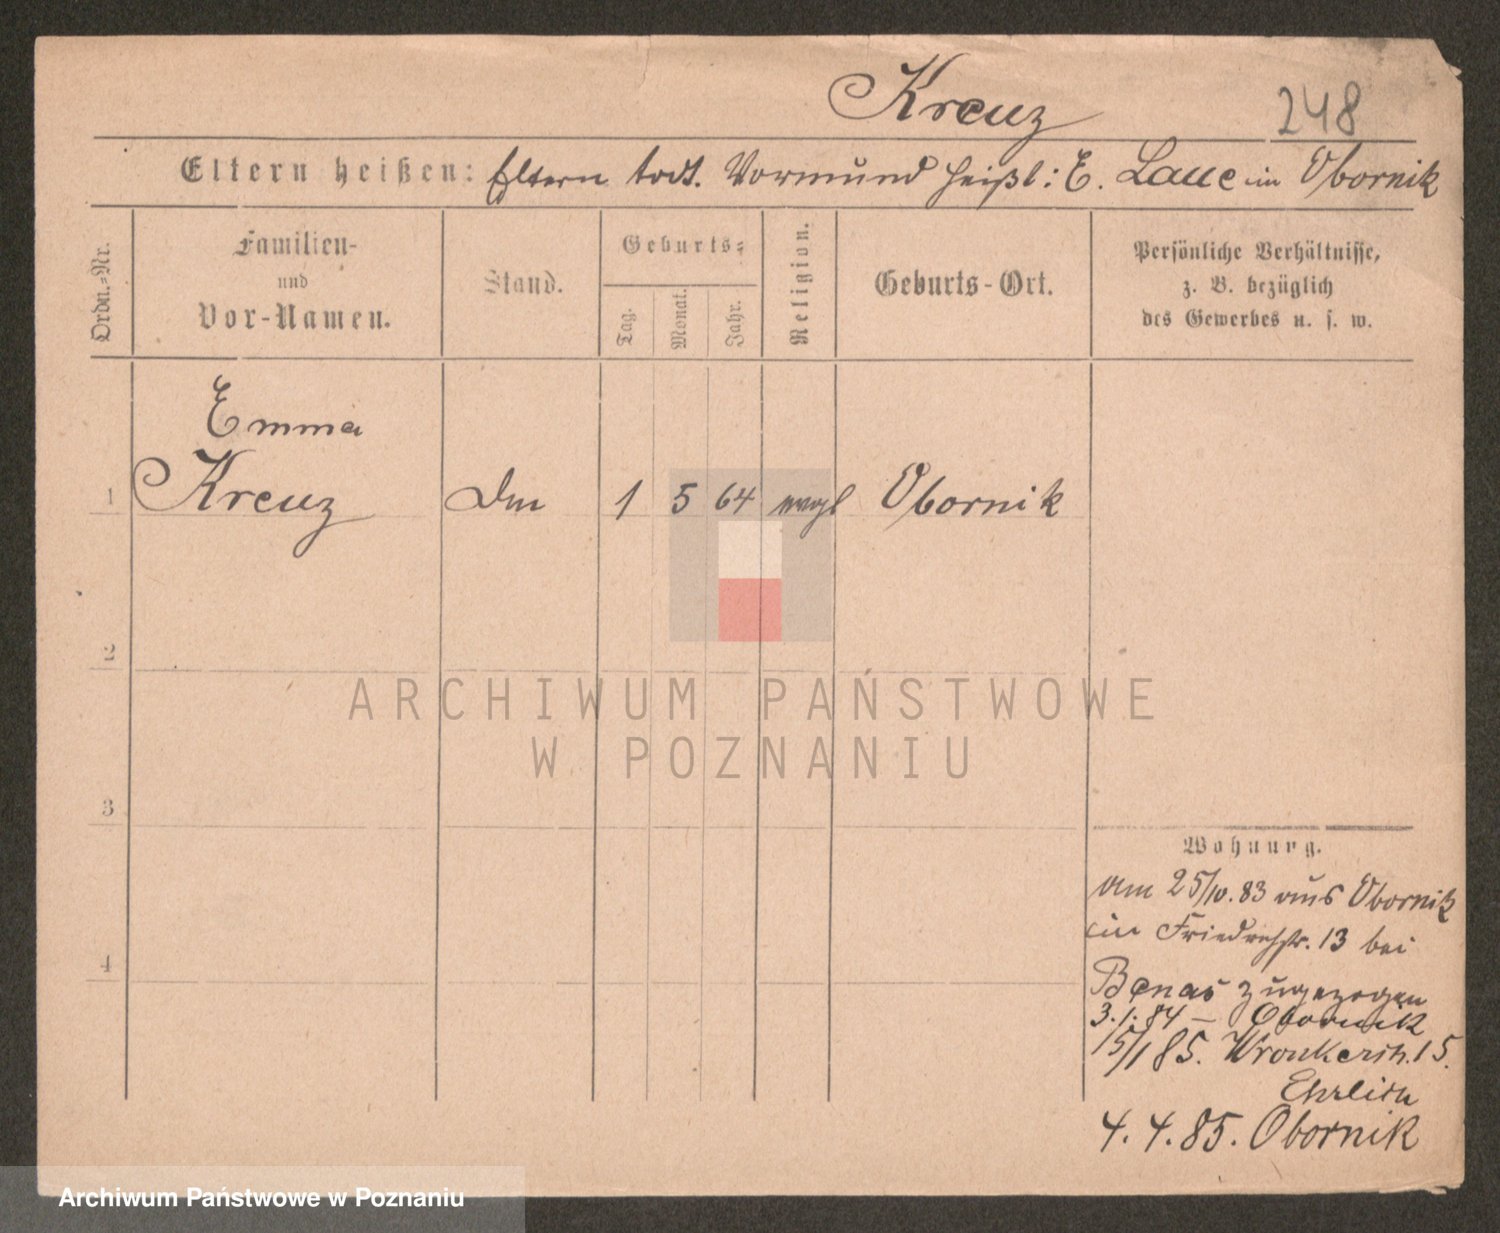 Kreuz
248
Eltern heißen: Eltern todt. Vormund heißt: E. Laue in Obornik
Ordn.-Nr.
Familien-
und
Vor-Namen.
Stand.
Geburts-
Tag.
Monat.
Jahr.
Religion.
Geburts-Ort.
Persönliche Verhältnisse,
z. B. bezüglich
des Gewerbes u. s. w.
Emma
1 Kreuz 1 5 64 evgl Obornik
2
ARCHIWUM PAŃSTWOWE
W POZNANIU
3
Wohnung.
am 25/10. 83 aus Obornik
in Friedrichstr. 13 bei
4
Benas zugezogen
3.1.84 – Obornik
15/1 85. Wronkerstr. 15.
Ehrlich
4.4.85. Obornik
Archiwum Państwowe w Poznaniu